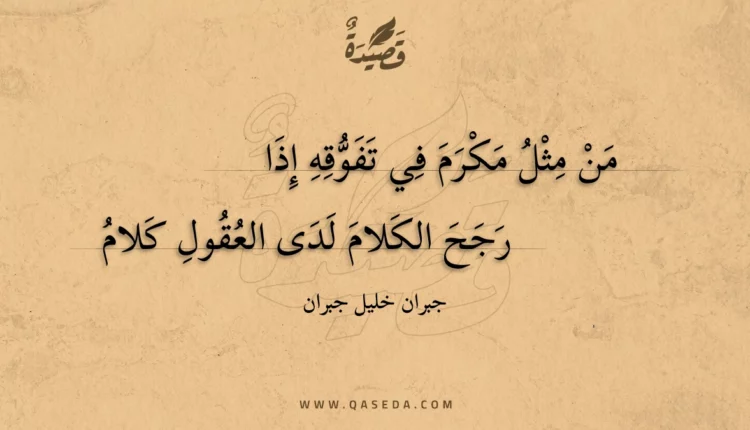 قَصِيدَةٌ
مَنْ مِثْلُ مَكْرَمَ فِي تَفَوُّقِهِ إِذَا
رَجَحَ الكَلامَ لَدَى العُقُولِ كَلامُ
جبران خليل جبران
WWW.QASEDA.COM